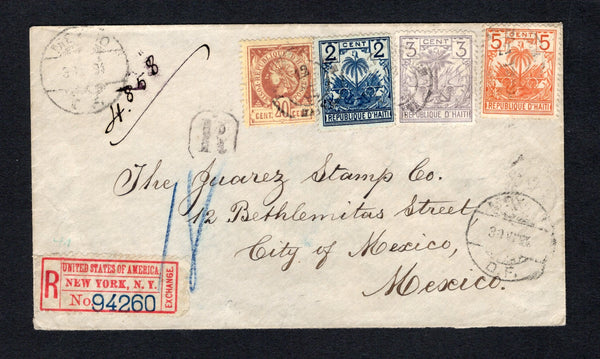 4.858
CENT 20 CENT
CENT
2 2
REPUBLIQUE D'HAITI
CENT
3 3
REPUBLIQUE D'HAITI
CENT
5 5
REPUBLIQUE D'HAITI
R
The Juarez Stamp Co.
12 Bethlemitas Street
City of Mexico,
Mexico.
18
D.F.
UNITED STATES OF AMERICA.
R NEW YORK, N.Y.
No. 94260
EXCHANGE